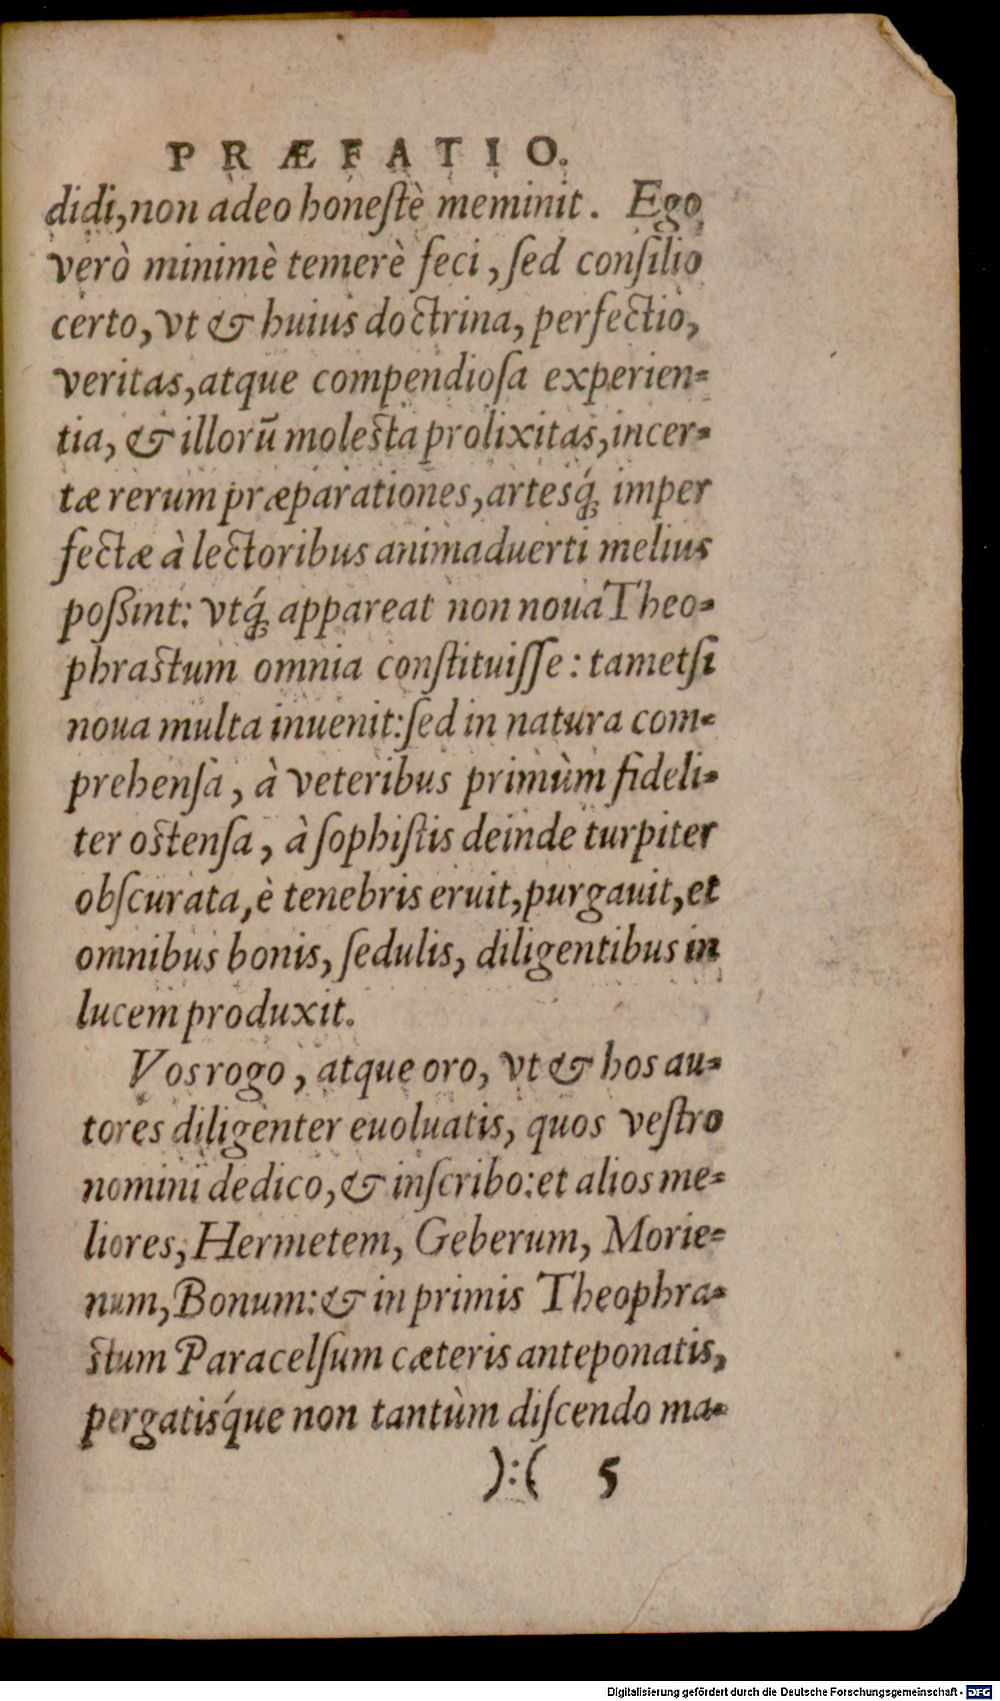 PRÆFATIO.
didi, non adeo honeſtè meminit. Ego
verò minimè temerè feci, ſed conſilio
certo, vt & huius doctrina, perfectio,
veritas, atque compendioſa experien-
tia, & illorū moleſta prolixitas, incer-
tæ rerum præparationes, artesq́; imper
fectæ à lectoribus animaduerti melius
poßint: vtq́; appareat non noua Theo-
phraſtum omnia conſtituiſſe: tametſi
noua multa inuenit: ſed in natura com-
prehenſa, à veteribus primùm fideli-
ter oſtenſa, à ſophiſtis deinde turpiter
obſcurata, è tenebris eruit, purgauit, et
omnibus bonis, ſedulis, diligentibus in
lucem produxit.
Vos rogo, atque oro, vt & hos au-
tores diligenter euoluatis, quos veſtro
nomini dedico, & inſcribo: et alios me-
liores, Hermetem, Geberum, Morie-
num, Bonum: & in primis Theophra-
ſtum Paracelſum cæteris anteponatis,
pergatisq́ue non tantùm diſcendo ma-
):( 5
Digitalisierung gefördert durch die Deutsche Forschungsgemeinschaft - DFG